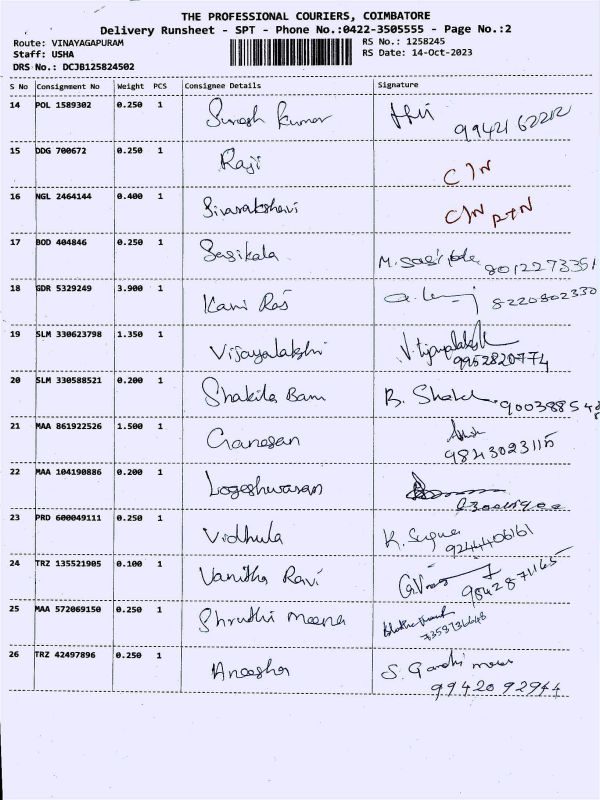 THE PROFESSIONAL COURIERS, COIMBATORE
Delivery Runsheet - SPT - Phone No.:0422-3505555 - Page No.:2
Route: VINAYAGAPURAM RS No.: 1258245
Staff: USHA RS Date: 14-Oct-2023
DRS No.: DCJB125824502
S No Consignment No Weight PCS Consignee Details Signature
14 POL 1589302 0.250 1 Suresh Kumar
15 DDG 700672 0.250 1 Raji C/N
16 NGL 2464144 0.400 1 Sivarakshavi C/N RTN
17 BOD 404846 0.250 1 Sasikala M. Sasikala 8012273351
18 GDR 5329249 3.900 1 Kavi Raj 8220802330
19 SLM 330623798 1.350 1 Vijayalakshi 9952820774
20 SLM 330588521 0.200 1 Shakila Banu B. Shakil
21 MAA 861922526 1.500 1 Ganesan 9843023115
22 MAA 104190886 0.200 1 Logeshwaran
23 PRD 600049111 0.250 1 Vidhula K. Suguna 9244406161
24 TRZ 135521905 0.100 1 Vanitha Ravi 9842871165
25 MAA 572069150 0.250 1 Shruthi Meena
26 TRZ 42497896 0.250 1 Aneesha S. Gandhi 9942092944